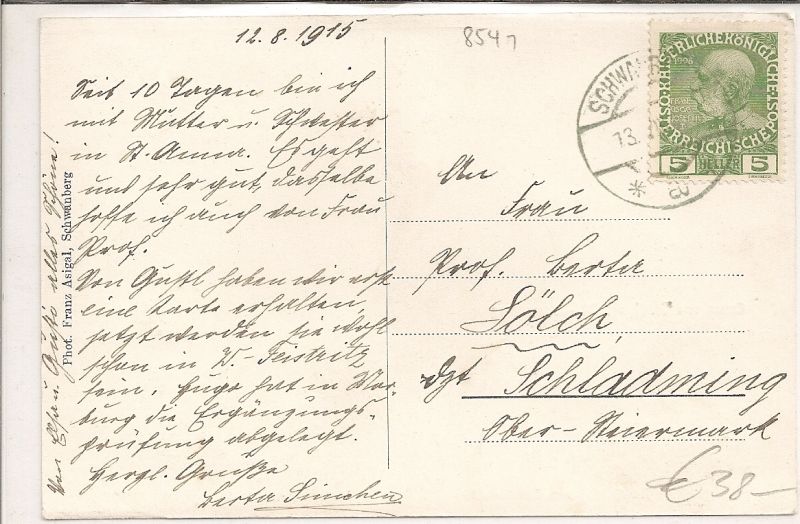 12.8.1915
8547
Seit 10 Tagen bin ich
mit Mutter u. Schwester
in St. Anna. Es geht
uns sehr gut, dasselbe
hoffe ich auch von Frau
Prof.
Von Gustl haben wir erst
eine Karte erhalten,
jetzt werden sie wohl
schon in W. Feistritz
sein. Hugo hat in Mar-
burg die Ergänzungs-
prüfung abgelegt.
Herzl. Grüße
Berta Simchen
alles Schöne!
Phot. Franz Asigal, Schwanberg
SCHWANB
13.
KAISERLICHE KÖNIGLICHE
ÖSTERREICHISCHE POST
1908
5 HELLER 5
An
Frau
Prof. Berta
Sölch,
Schladming
Ober-Steiermark
€ 38-